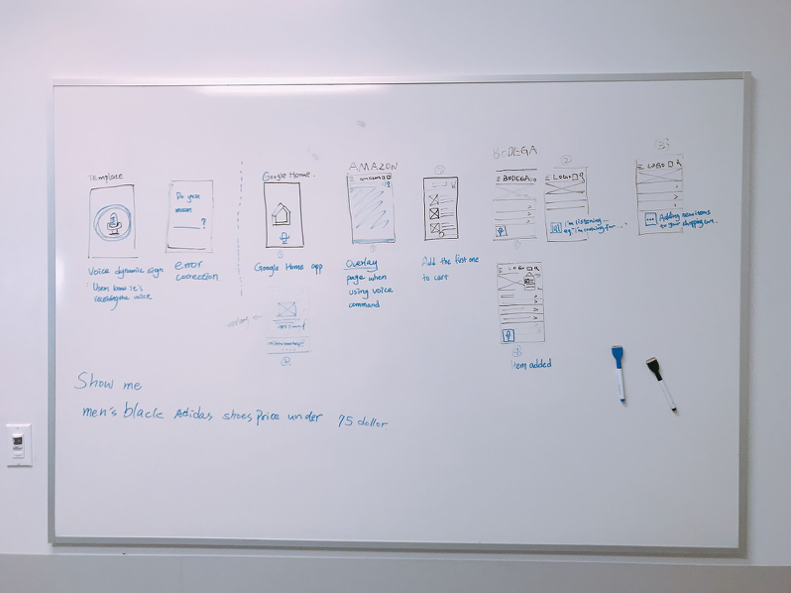 Template
Voice dynamic sign
Users know it's
receiving the voice
Do you
mean
?
error
correction
Google Home.
Google Home app
AMAZON
amazon
Overlay
page when
using voice
command
Add the first one
to cart
BODEGA
BODEGA
②
LOGO
I'm listening...
eg "I'm looking for..."
③
LOGO
Adding new items
to your shopping cart.
LOGO
Item added
Show me
men's black Adidas shoes price under 75 dollar